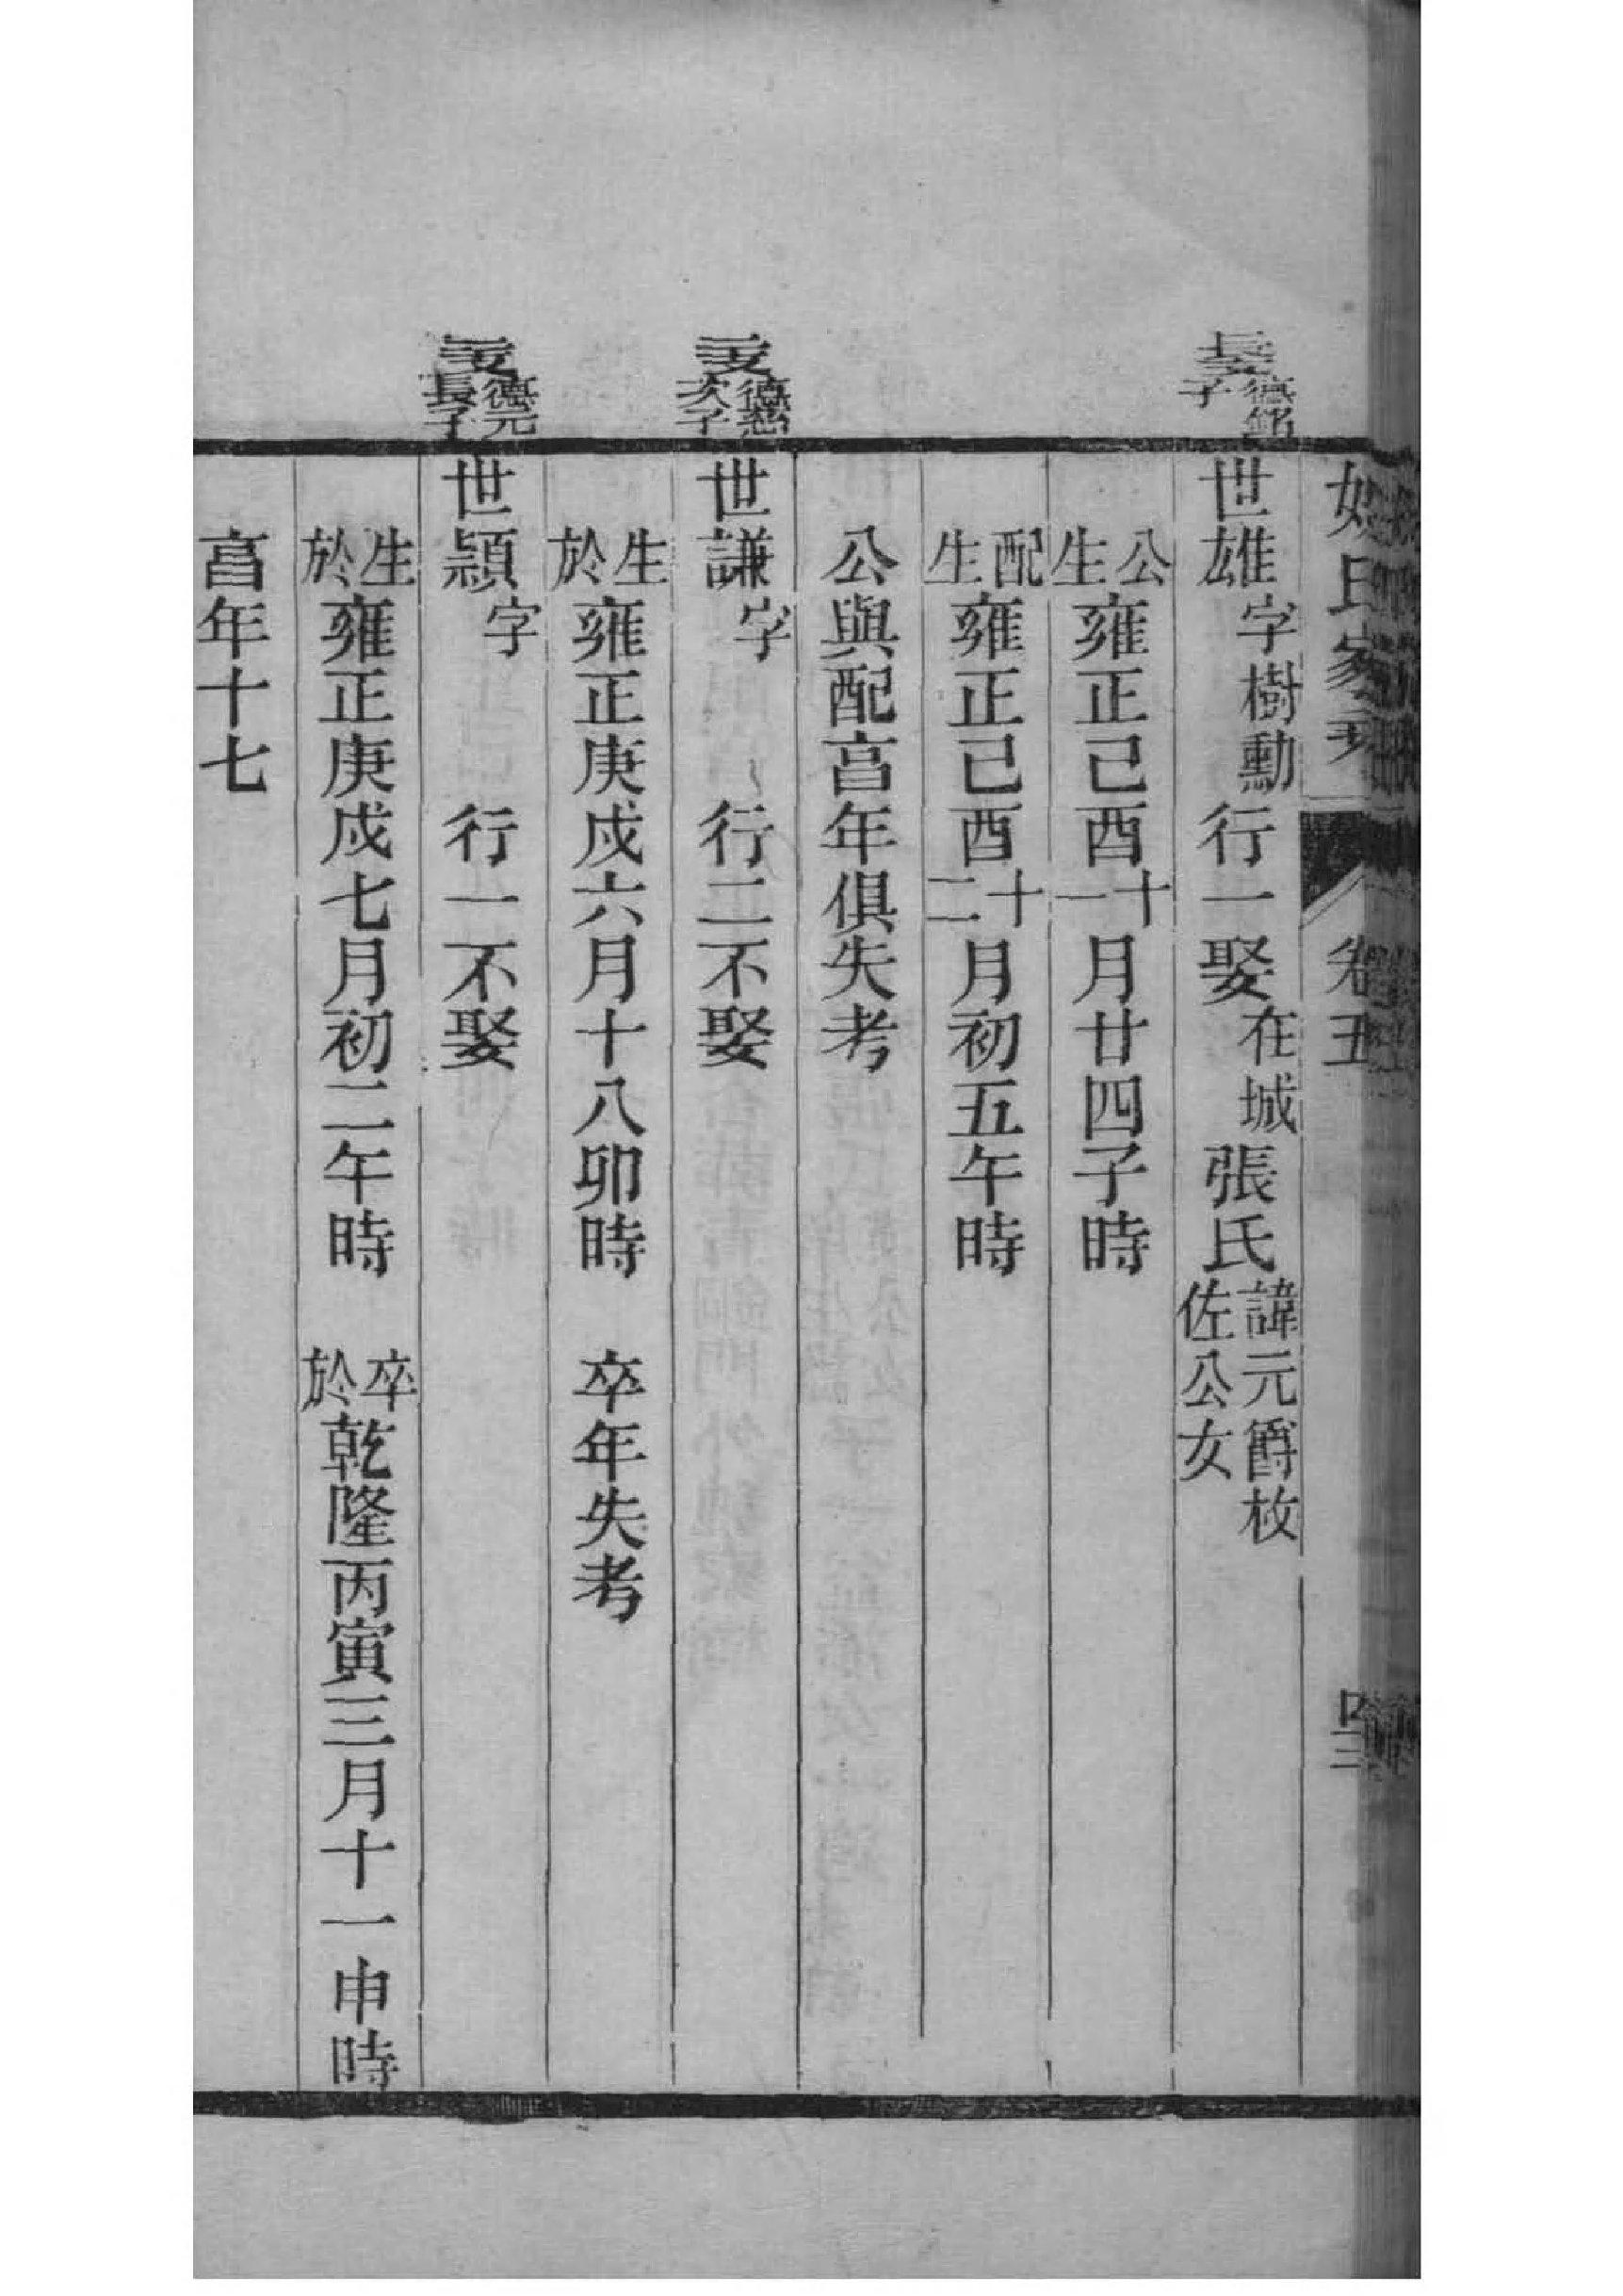 卷五
長支 德銘子
世雄 字樹勳 行一 娶 在城 張氏 諱元爵枚佐公女
公生 雍正己酉 十一 月廿四子時
配生 雍正己酉 十二 月初五午時
公與配亯年俱失考
二支 德慈次子
世謙 字 行二 不娶
生於 雍正庚戍六月十八卯時 卒年失考
二支 德元長子
世穎 字 行一 不娶
生於 雍正庚戍七月初二午時 卒於 乾隆丙寅三月十一申時
亯年十七